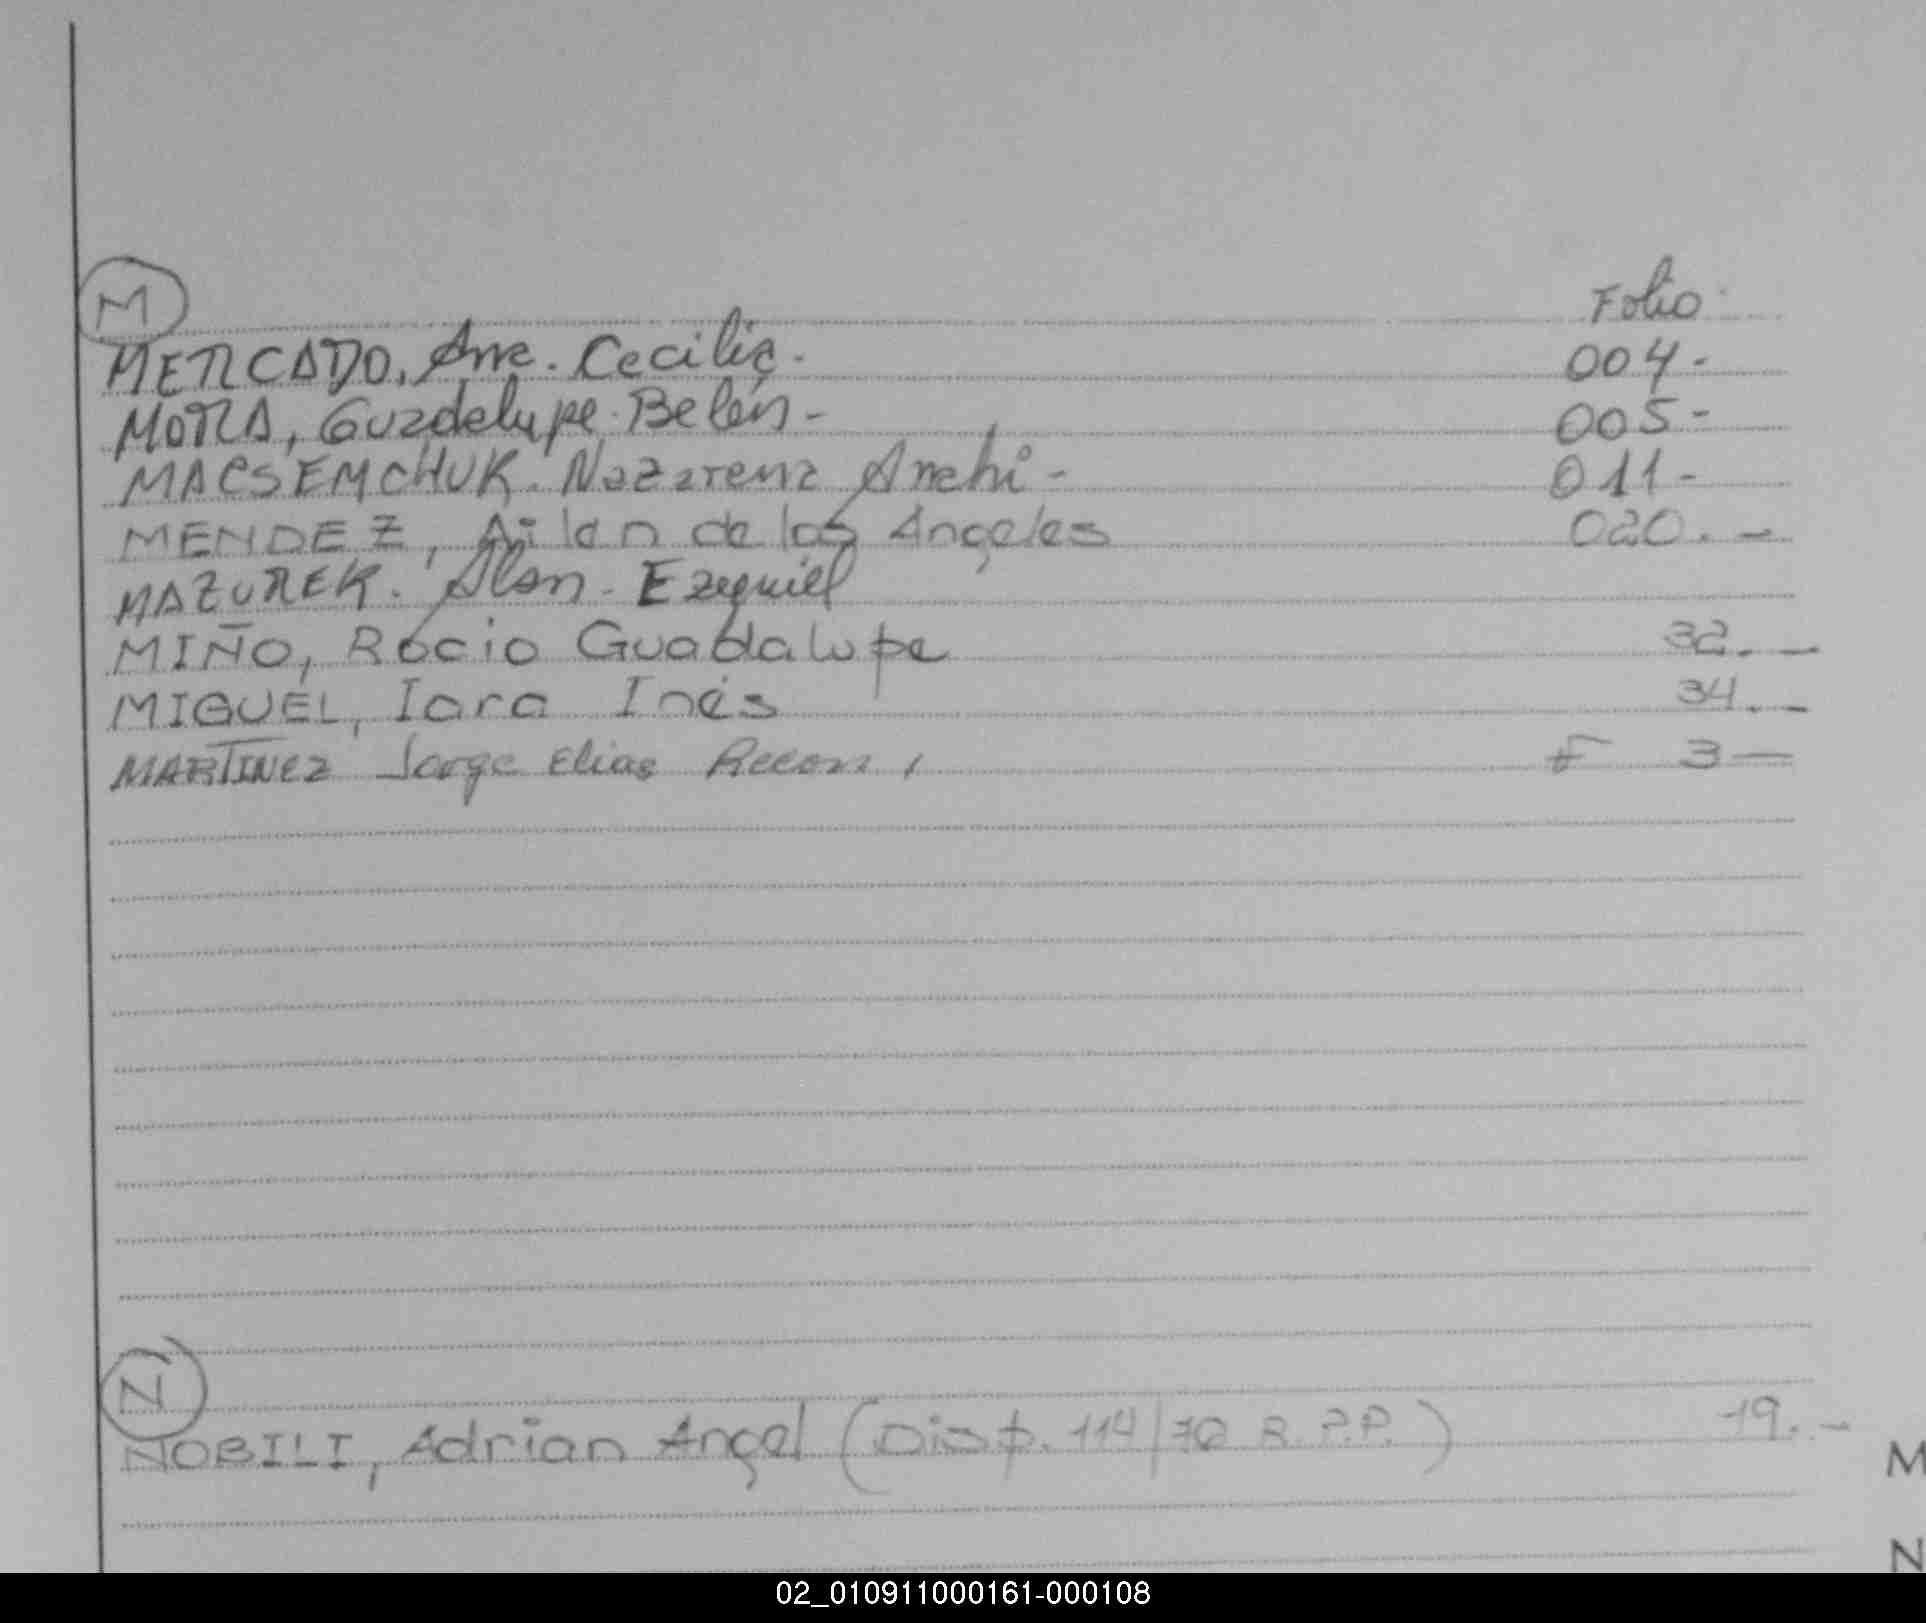 M
Folio
MERCADO, Ana. Cecilia. 004-
MORA, Guadalupe Belén- 005-
MACSEMCHUK. Nazarena Anahi- 011-
MENDEZ, Ailen de los Angeles 020.-
MAZUREK. Alan. Ezequiel
MIÑO, Rocio Guadalupe 32.-
MIGUEL, Iara Inés 34.-
MARTINEZ Jorge Elias Recon F 3-
N
NOBILI, Adrian Angel (Disp. 114/ R.P.P.) 19.-
M
N
02_010911000161-000108